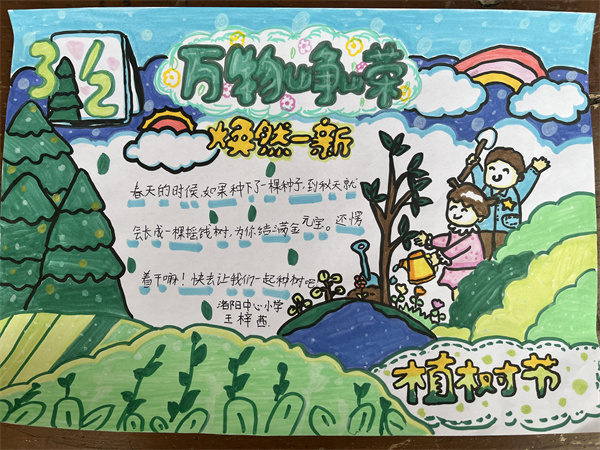 3/12
万物峥嵘
焕然一新
春天的时候,如果种下了一棵种子,到秋天就
会长成一棵摇钱树,为你结满金元宝。还愣
着干嘛!快去让我们一起种树吧
洛阳中心小学
王梓茜
植树节